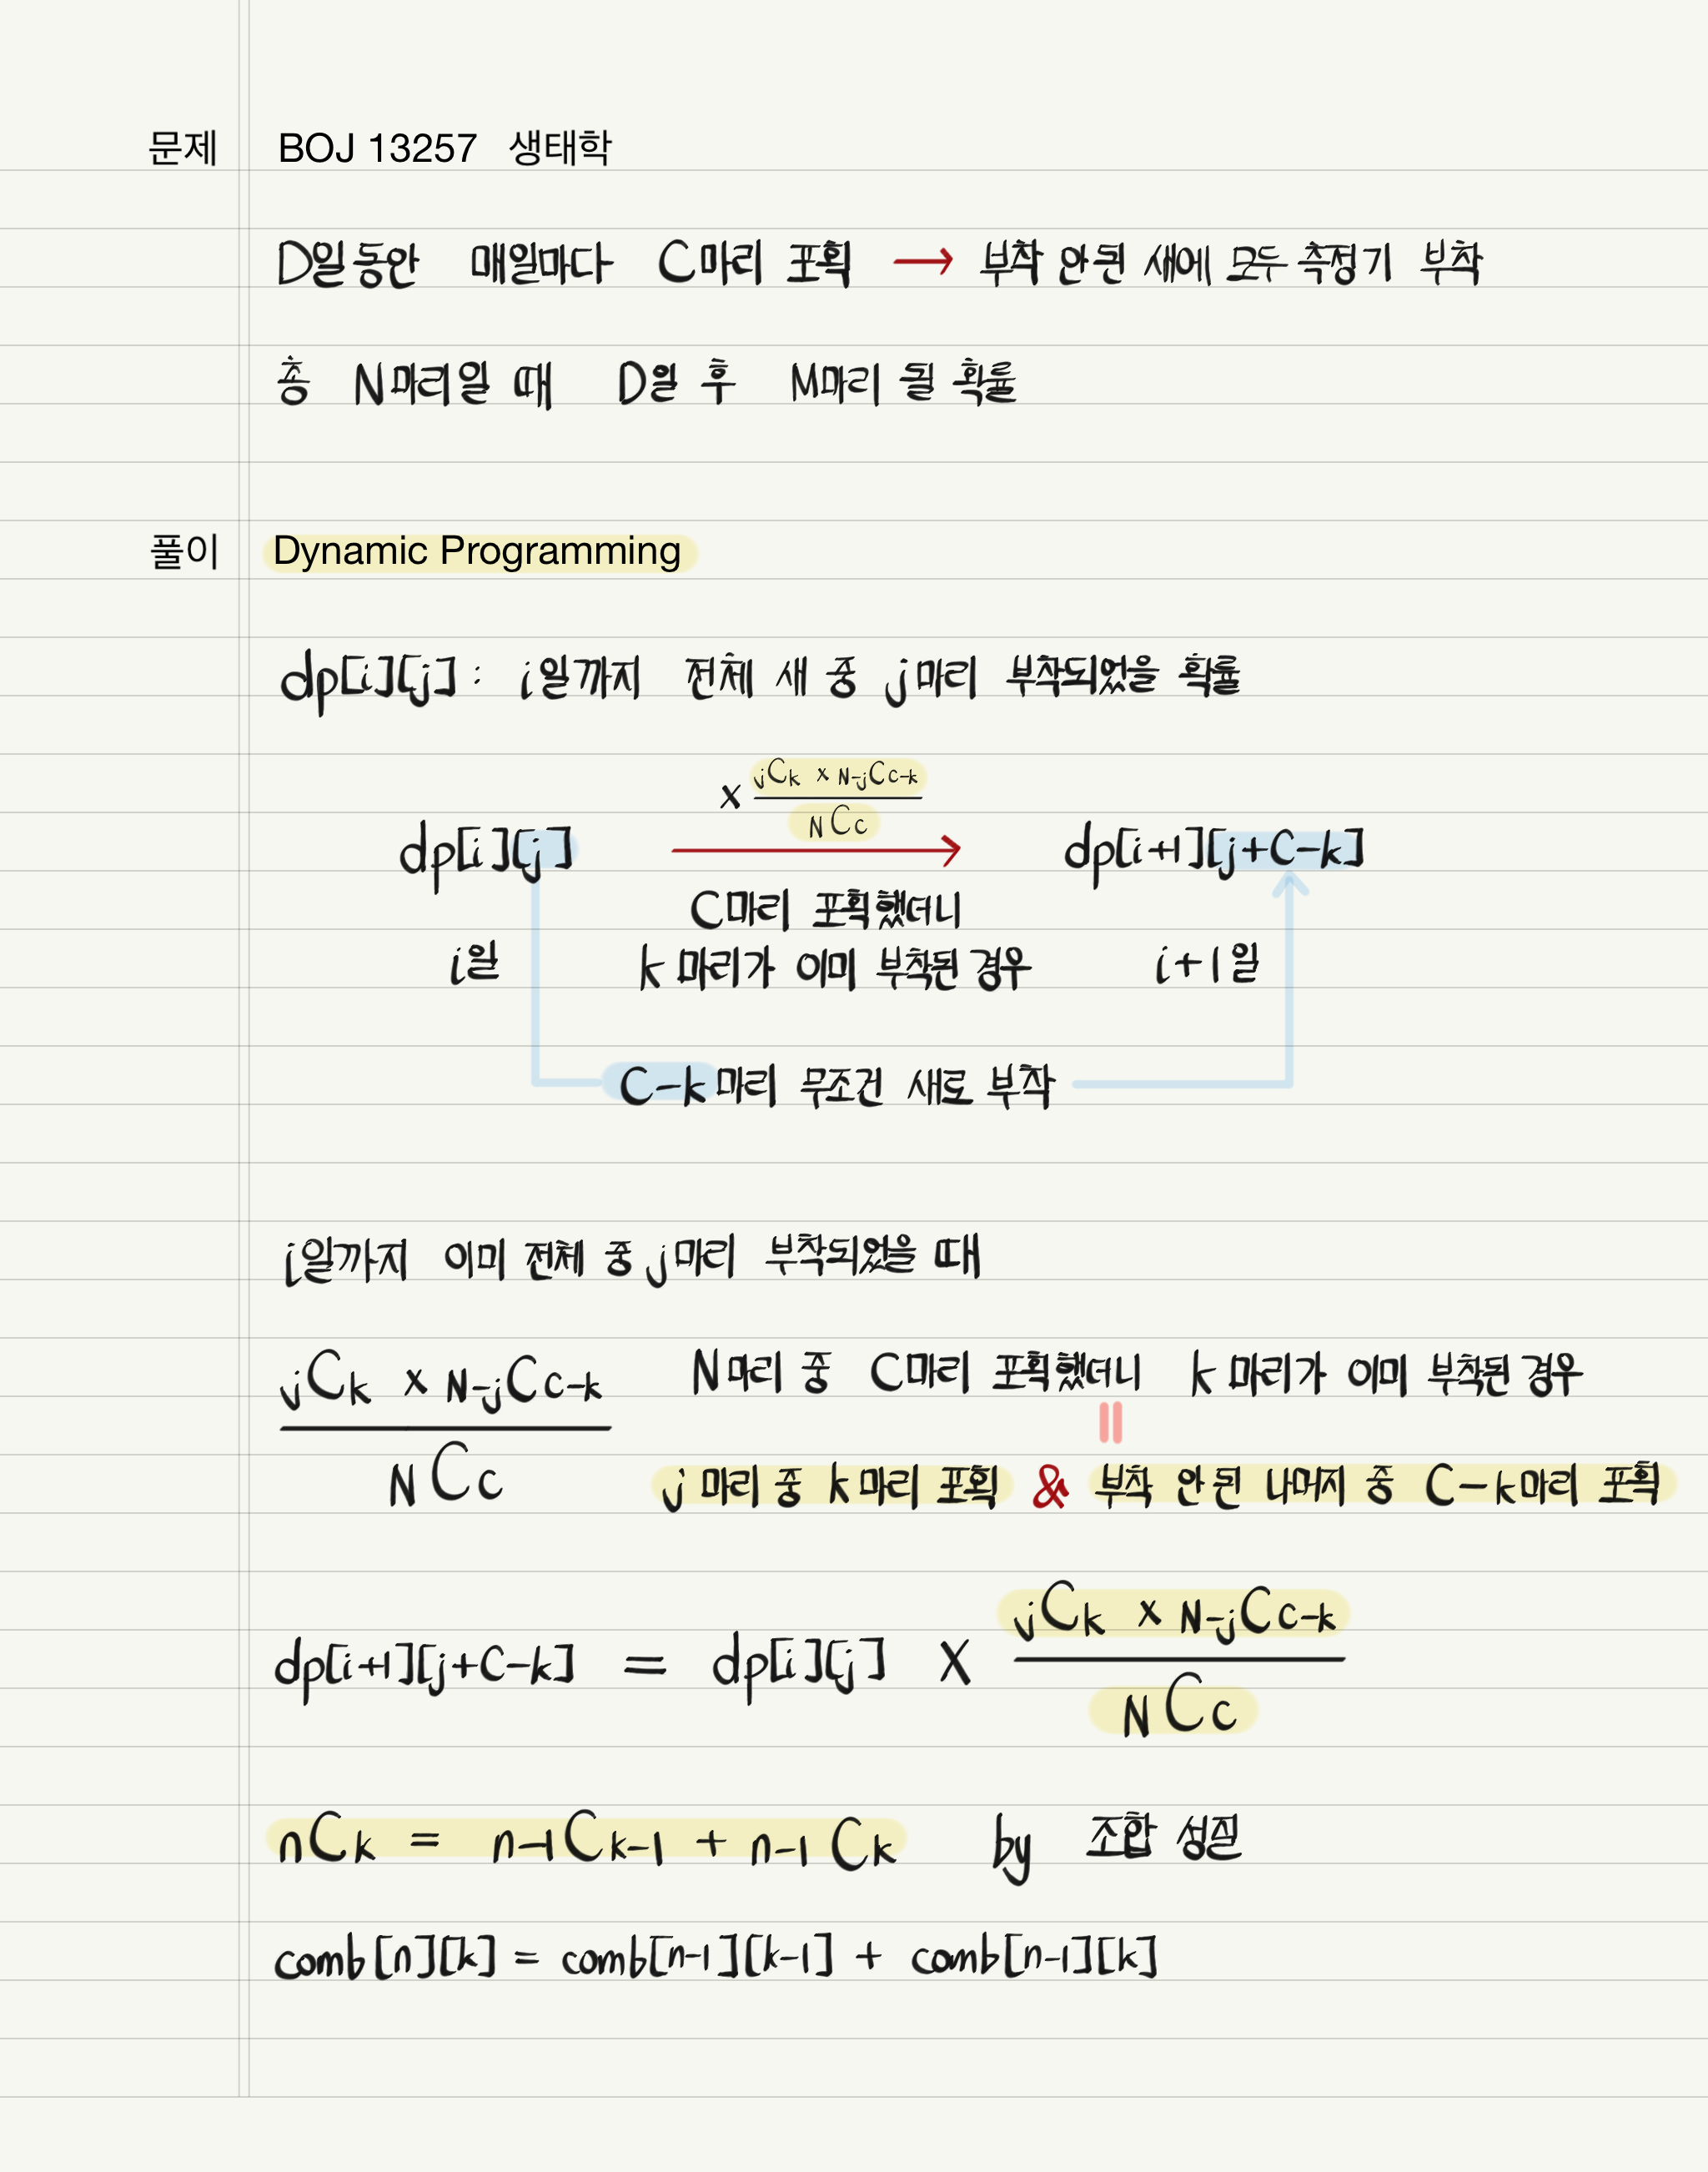 문제 BOJ 13257 생태학
D일동안 매일마다 C마리 포획 → 부착 안된 새에 모두 측정기 부착
총 N마리일 때 D일 후 M마리 될 확률
풀이 Dynamic Programming
dp[i][j] : i일까지 전체 새 중 j마리 부착되었을 확률
× jCk × N-jCc-k
NCc
dp[i][j] → dp[i+1][j+C-k]
C마리 포획했더니
i일 k마리가 이미 부착된 경우 i+1일
C-k마리 무조건 새로 부착
i일까지 이미 전체 중 j마리 부착되었을 때
jCk × N-jCc-k N마리 중 C마리 포획했더니 k마리가 이미 부착된 경우
||
NCc j마리 중 k마리 포획 & 부착 안 된 나머지 중 C-k마리 포획
jCk × N-jCc-k
dp[i+1][j+C-k] = dp[i][j] ×
NCc
nCk = n-1Ck-1 + n-1Ck by 조합 성질
comb[n][k] = comb[n-1][k-1] + comb[n-1][k]